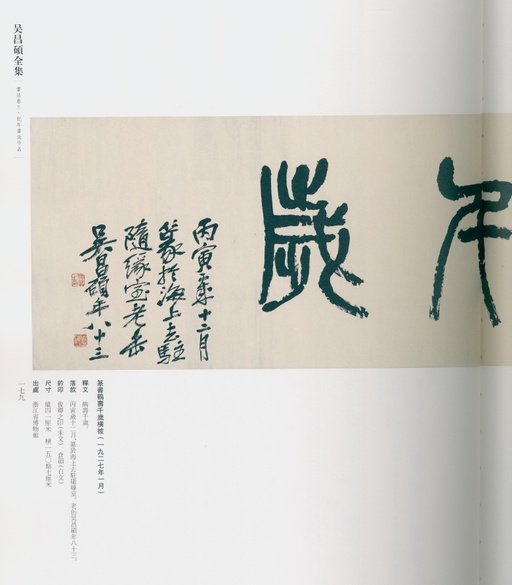 吴昌碩全集
書法卷三·紀年書法作品
千歲
丙寅歲十二月
篆於海上去駐
隨緣室老缶
吳昌碩年八十三
篆書鶴壽千歲橫披(一九二七年一月)
釋文 鶴壽千歲。
落款 丙寅歲十二月,篆於海上去駐隨緣室,老缶吳昌碩年八十三。
鈐印 俊卿之印(朱文) 倉碩(白文)
尺寸 縱四一厘米 橫一五〇點七厘米
出處 浙江省博物館
一七九